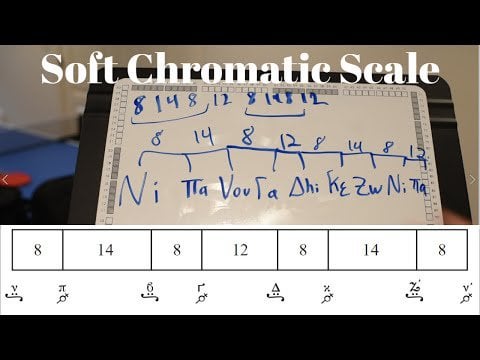 Soft Chromatic Scale
8 14 8 12 8 14 8 12
8 14 8 12 8 14 8 12
Ni Πα Vου Γα Δhi Κε Zω Ni Πα
8 14 8 12 8 14 8
ν π β Γ Δ κ Z' ν'